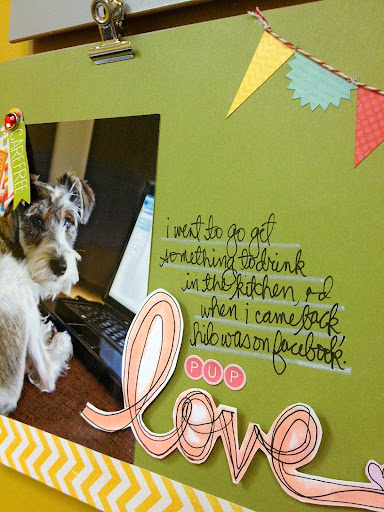 CAREFREE
i went to go get
something to drink
in the kitchen, nd
when i came back
hilo was on facebook.
PUP
love